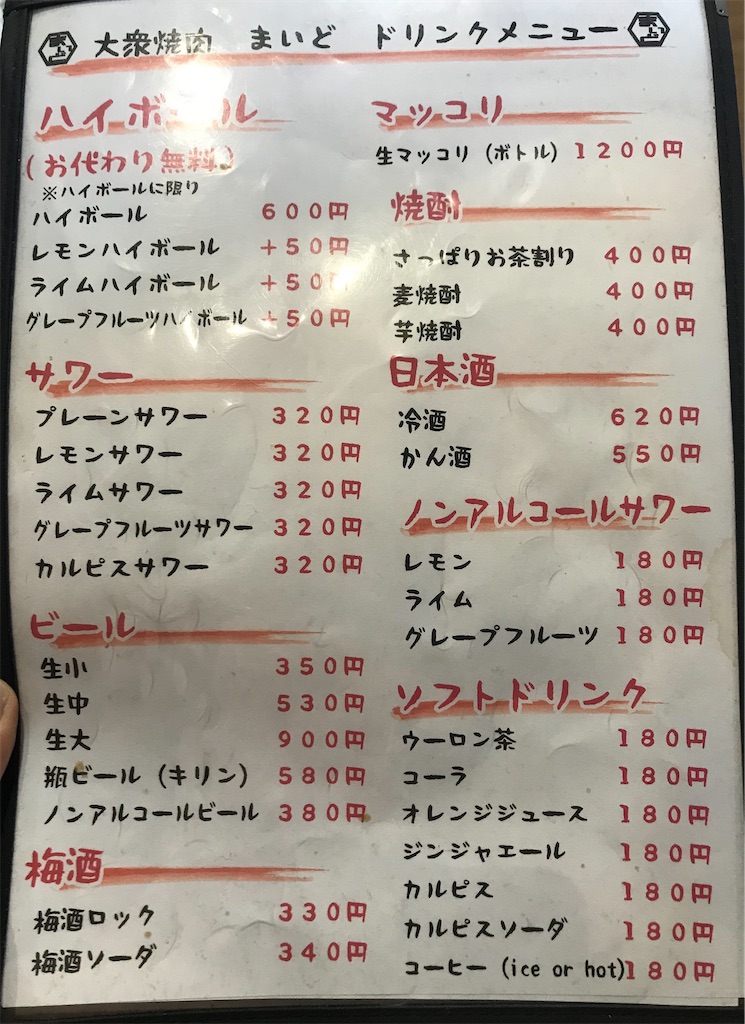 大衆焼肉 まいど ドリンクメニュー
ハイボール
(お代わり無料)
※ハイボールに限り
ハイボール 600円
レモンハイボール +50円
ライムハイボール +50円
グレープフルーツハイボール +50円
サワー
プレーンサワー 320円
レモンサワー 320円
ライムサワー 320円
グレープフルーツサワー 320円
カルピスサワー 320円
ビール
生小 350円
生中 530円
生大 900円
瓶ビール (キリン) 580円
ノンアルコールビール 380円
梅酒
梅酒ロック 330円
梅酒ソーダ 340円
マッコリ
生マッコリ (ボトル) 1200円
焼酎
さっぱりお茶割り 400円
麦焼酎 400円
芋焼酎 400円
日本酒
冷酒 620円
かん酒 550円
ノンアルコールサワー
レモン 180円
ライム 180円
グレープフルーツ 180円
ソフトドリンク
ウーロン茶 180円
コーラ 180円
オレンジジュース 180円
ジンジャエール 180円
カルピス 180円
カルピスソーダ 180円
コーヒー (ice or hot) 180円